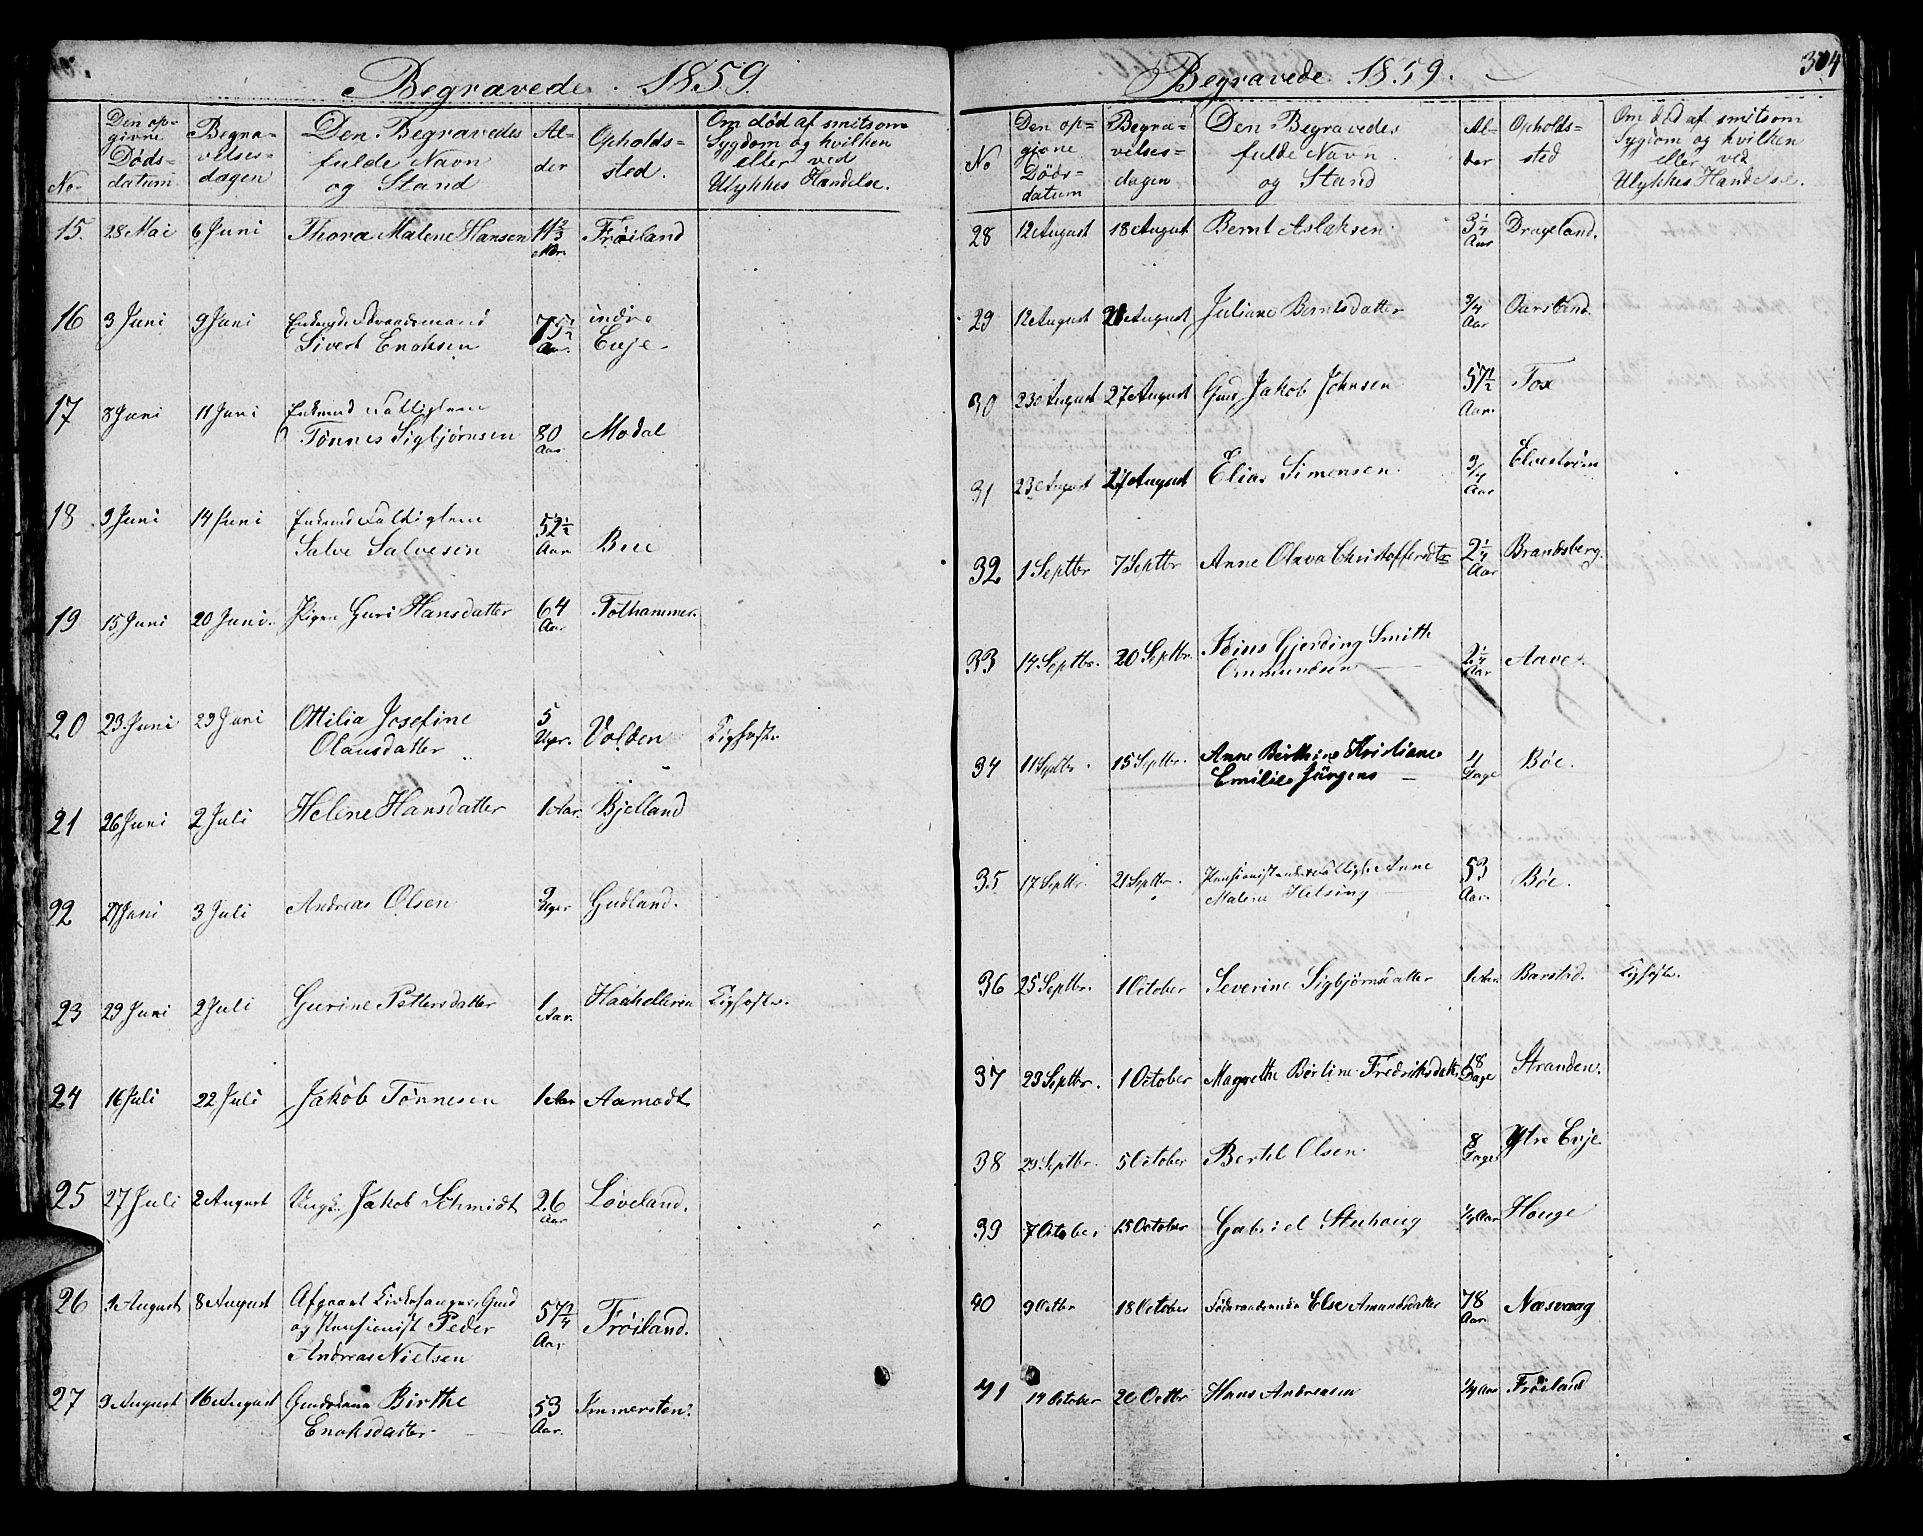 Begravede. 1859.
No. | Den opgivne Dødsdatum | Begravelsesdagen | Den Begravedes fulde Navn og Stand | Alder | Opholdssted. | Om død af smitsom Sygdom og hvilken eller ved Ulykkes Hændelse.
15. 28 Mai 6 Juni Thora Malene Hansen 11 2/3 Froiland
16 3 Juni 9 Juni Enkemand
Sivert Enoksen 75 1/2 Aar. indre Evje.
17 8 Juni 11 Juni Enkemand Fattiglem
Tønnes Sigbjørnsen 80 Aar Modal
18 9 Juni 14 Juni Enkemd Fattiglem
Salve Salvesen 52 1/2 Aar Bue
19 15 Juni 20 Juni. Pigen Guri Hansdatter 64 Aar Tothammer.
20 23 Juni 29 Juni Ottilia Josefine
Olausdatter 5 Uger. Volden Kighoste.
21 26 Juni 2 Juli Helene Hansdatter 1 Aar. Bjelland
22 27 Juni 3 Juli Andreas Olsen 3 Uger Gudland.
23 29 Juni 2 Juli Gurine Pettersdatter 1 Aar. Haahelleren Kighoste.
24 16 Juli 22 Juli Jakob Tønnesen 1 Aar Aamodt
25 27 Juli 2 August Ungk. Jakob Schmidt 26 Aar Løveland.
26 3 August 8 August Afgaaet Kirkesanger, Gmd
og Pensionist Peder
Andreas Nielsen 57 3/4 Aar Frøiland.
27 9 August 16 August Gmdskone Birthe
Enoksdatter 53 Aar. Immersten.
304
Begravede. 1859.
No | Den opgivne Dødsdatum | Begravelsesdagen | Den Begravedes fulde Navn og Stand | Alder | Opholdssted | Om død af smitsom Sygdom og hvilken eller ved Ulykkes Hændelse.
28 12 August 18 August Bernt Aslaksen 3 1/4 Aar Drageland.
29 12 August 21 August Juliane Berntsdatter 3/4 Aar Oarstand.
30 23 August 27 August Gmd Jakob Johnsen 57 1/2 Aar. Foss
31 23 August 27 August Elias Simonsen. 3/4 Aar Elvestrøm
32 1 Septbr 7 Septbr Anne Olava Christoffersdtr 2 1/4 Aar Brandsberg.
33 14 Septbr. 20 Septbr. Gjerding Smith
Ommundsen 2 1/4 Aar Aave.
34 11 Septbr. 15 Septbr. Anne Birthine Kristiane
Emilie Jürgens Dage Bøe.
35 17 Septbr 21 Septbr. Pensionist Anne
Malene Helsing 53 Aar. Bøe.
36 25 Septbr. 1 October Severine Sigbjørnsdatter 1 Aar Barstad. Kighoste.
37 23 Septbr. 1 October Magrethe Bertine Fredriksdatt. 18 Dage Stranden.
38 29 Septbr. 5 October Bertel Olsen. 8 Dage Ytre Evje
39 7 October 15 October Gabriel Stuhoug 1/4 Aar Houge
40 9 Octbr 18 October Føderaadsenke Else Amundsdatter 78 Aar Næsvaag
41 14 October 20 Octbr Hans Andreasen 1/4 Aar Frøiland